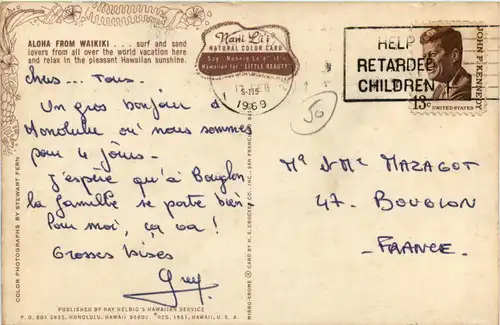 ALOHA FROM WAIKIKI . . . surf and sand
lovers from all over the world vacation here
and relax in the pleasant Hawaiian sunshine.
Nani Li'i
NATURAL COLOR CARD
Say "Nahnie Le'e" it's
Hawaiian for "LITTLE BEAUTY"
1969
HELP
RETARDED
CHILDREN
JOHN F. KENNEDY
13c
UNITED STATES
50
Chers ... Tous.
Un gros bonjour d'
Honolulu où nous sommes
pour 4 jours.
J'espère qu'à Bouglon
la famille se porte bien.
Pour moi, ça va !
Grosses bises
Guy
Mr et Mme MAZAGOT
47. BOUGLON
- FRANCE -
COLOR PHOTOGRAPHS BY STEWART FERN
MIRRO-KROME ® CARD BY H. S. CROCKER CO., INC., SAN FRANCISCO
PUBLISHED BY RAY HELBIG'S HAWAIIAN SERVICE
P. O. BOX 2835, HONOLULU, HAWAII 96803 ® REG. 1951, HAWAII, U. S. A.